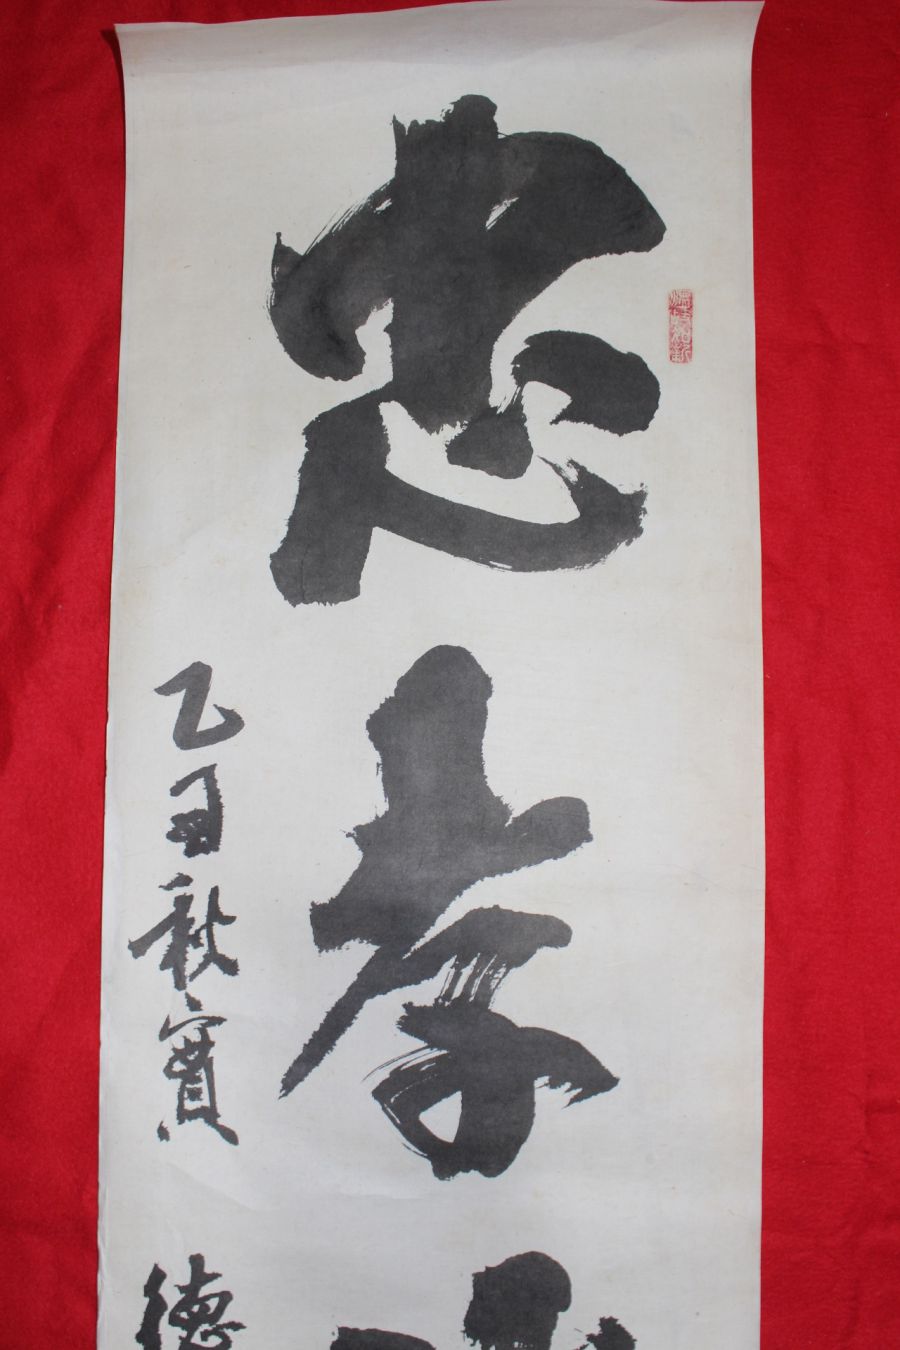 忠孝
乙丑秋實
德